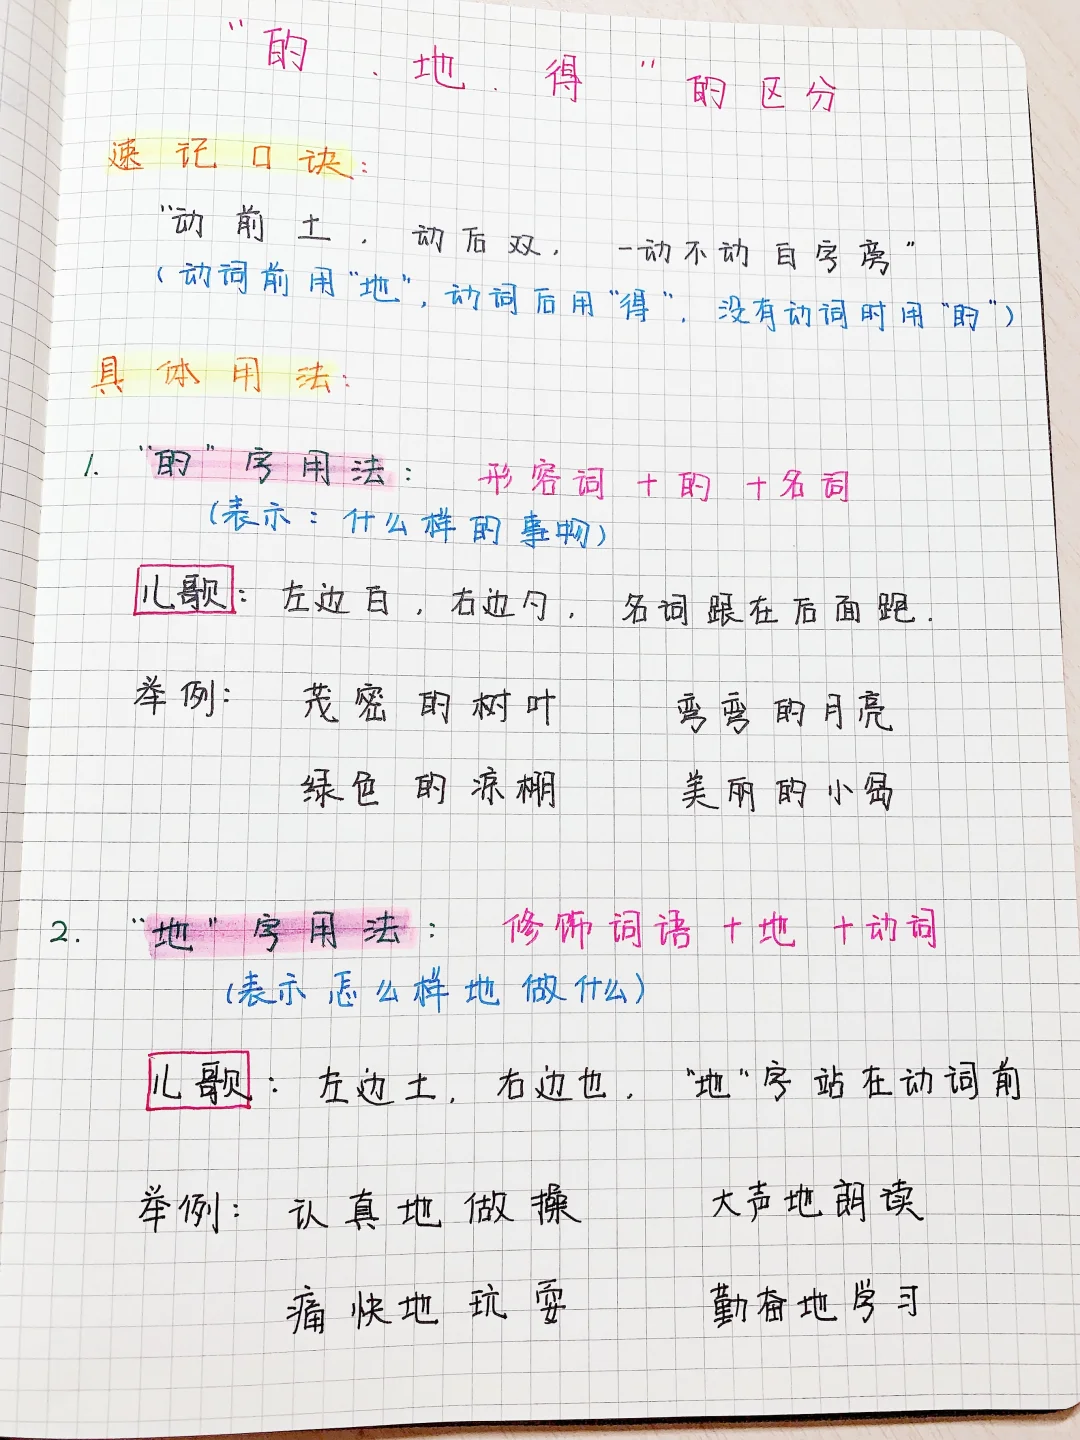 “的、地、得”的区分
速记口诀：
“动前土，动后双，一动不动白字旁”
（动词前用“地”，动词后用“得”，没有动词时用“的”）
具体用法：
1. “的”字用法： 形容词+的+名词
（表示：什么样的事物）
儿歌：左边白，右边勺，名词跟在后面跑.
举例： 茂密的树叶 弯弯的月亮
绿色的凉棚 美丽的小岛
2. “地”字用法： 修饰词语+地+动词
（表示怎么样地做什么）
儿歌：左边土，右边也，“地”字站在动词前
举例： 认真地做操 大声地朗读
痛快地玩耍 勤奋地学习